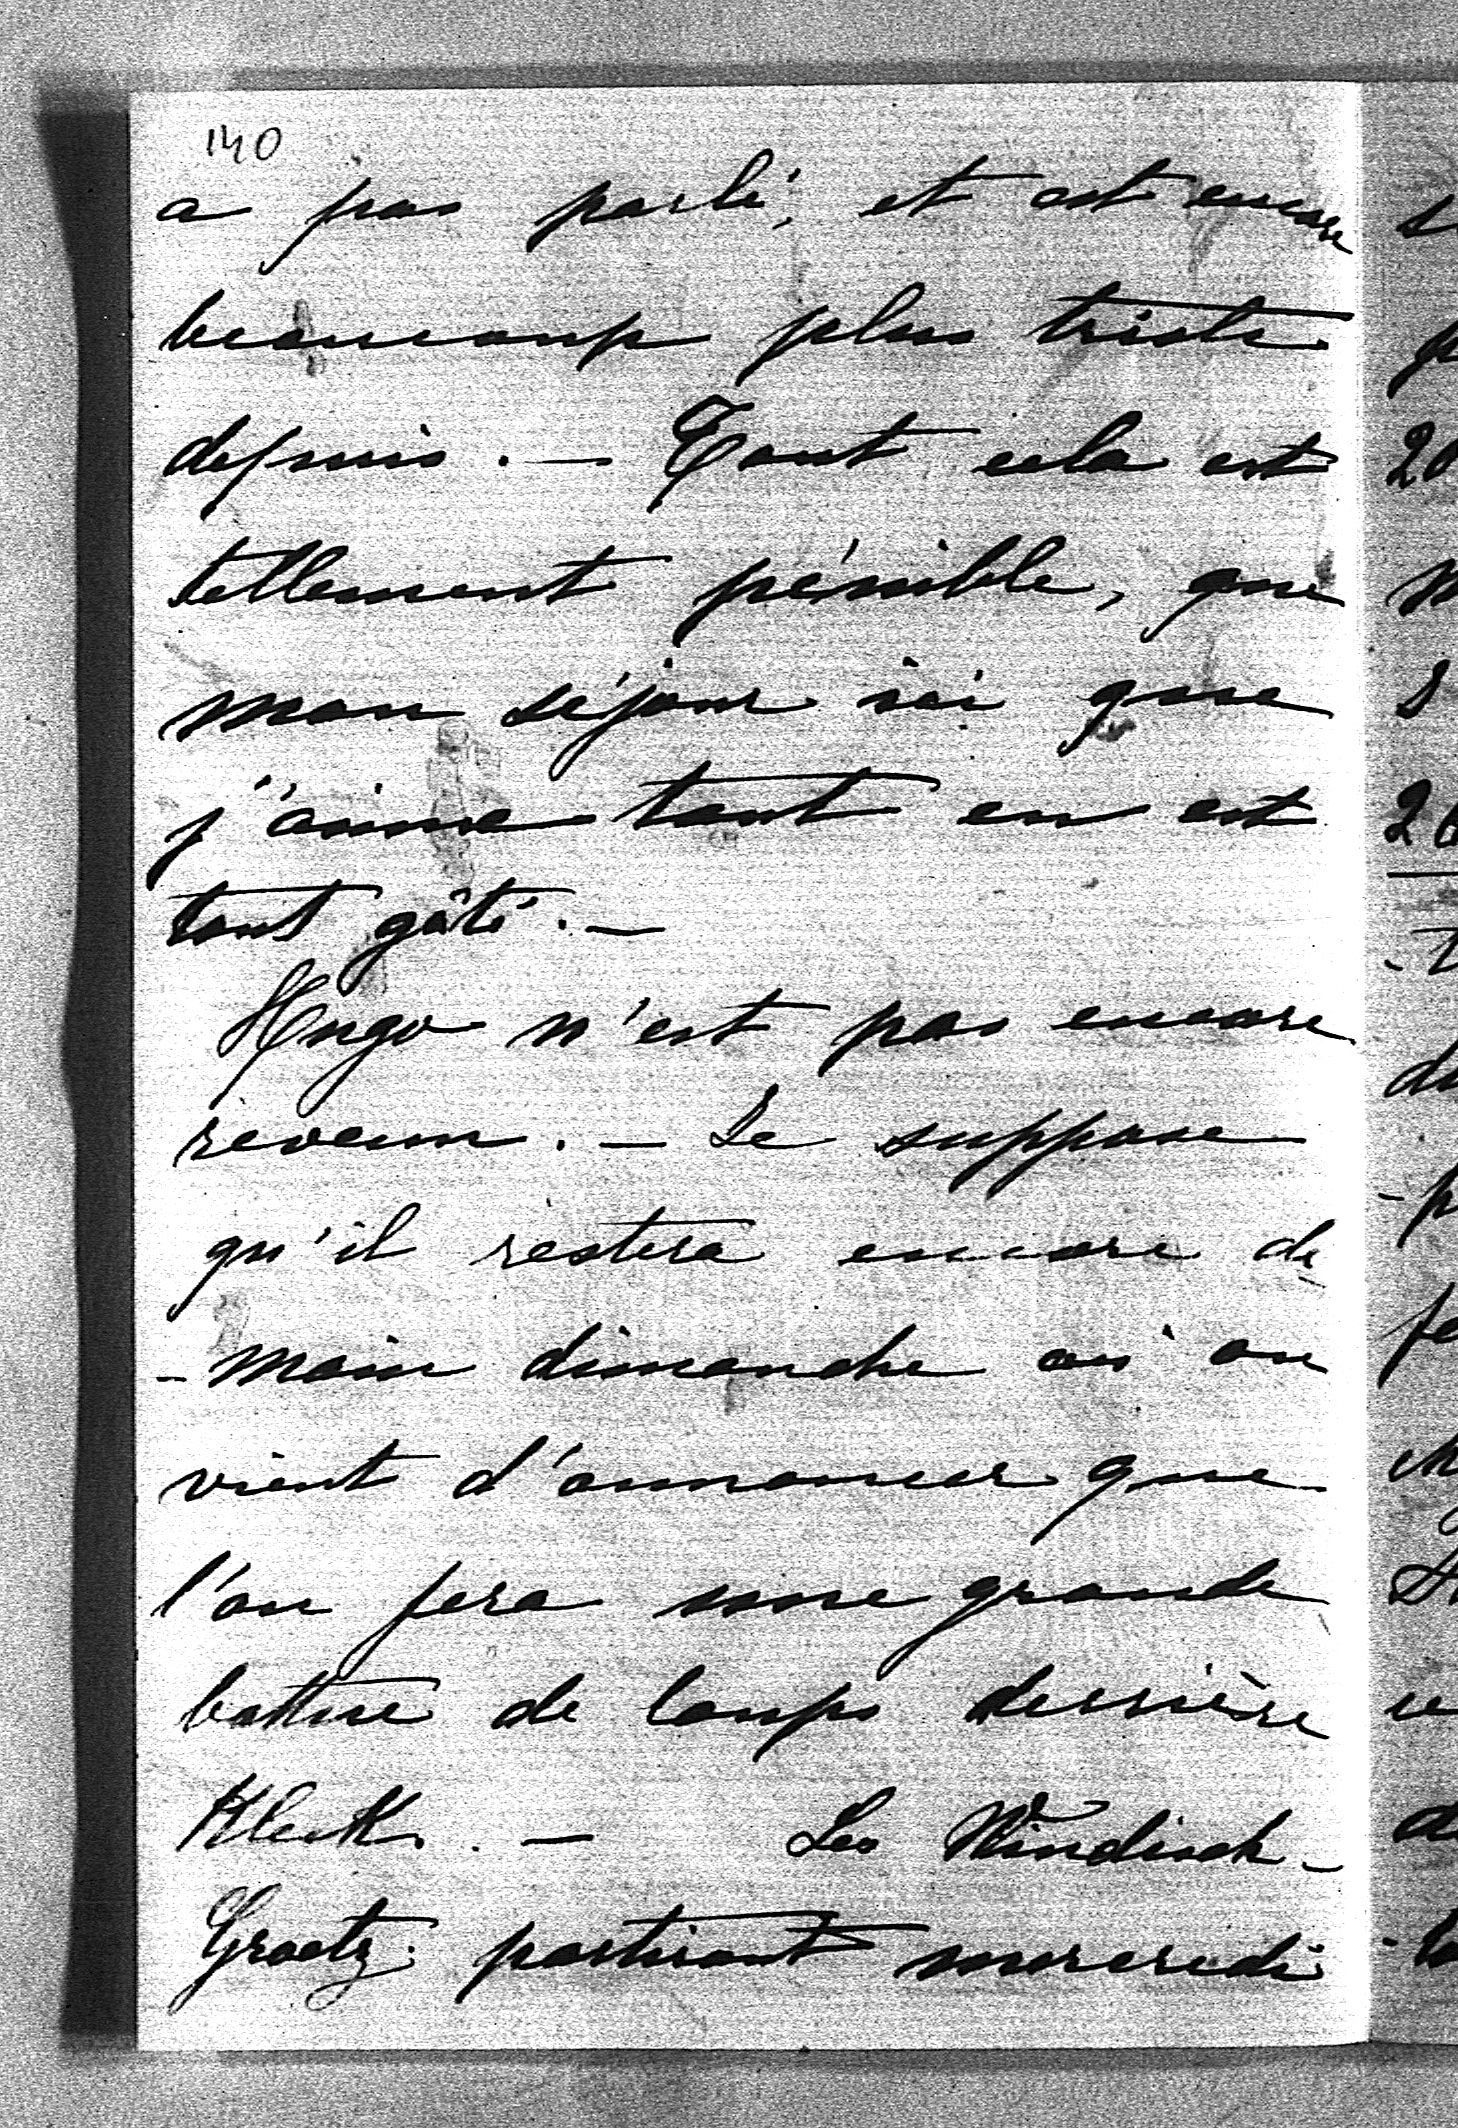 140
a pas parlé, et est encore
beaucoup plus triste
depuis. — Tout cela est
tellement pénible, que
mon séjour ici que
j'aime tant en est
tout gâté. —
Hugo n'est pas encore
revenu. — Je suppose
qu'il restera encore de
- main dimanche où on
vient d'annoncer que
l'on fera une grande
battue de loups derrière
Kleck. — Les Windisch-
Graetz partiront mercredi